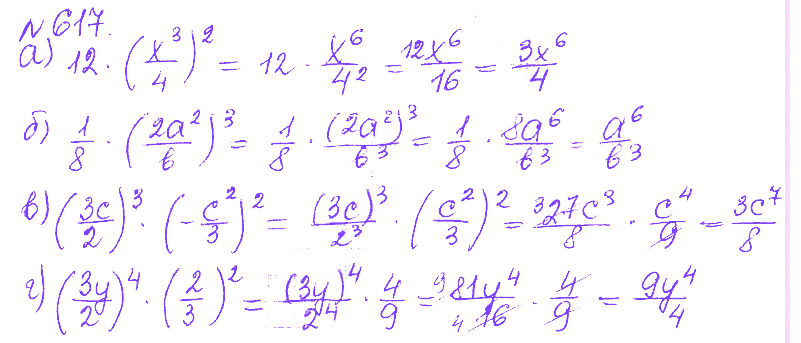 №617.
а) 12 · (x³/4)² = 12 · x⁶/4² = 12x⁶/16 = 3x⁶/4
б) 1/8 · (2a²/b)³ = 1/8 · (2a²)³/b³ = 1/8 · 8a⁶/b³ = a⁶/b³
в) (3c/2)³ · (-c²/3)² = (3c)³/2³ · (c²/3)² = ³27c³/8 · c⁴/9 = 3c⁷/8
г) (3y/2)⁴ · (2/3)² = (3y)⁴/2⁴ · 4/9 = ⁹81y⁴/₄16 · 4/9 = 9y⁴/4